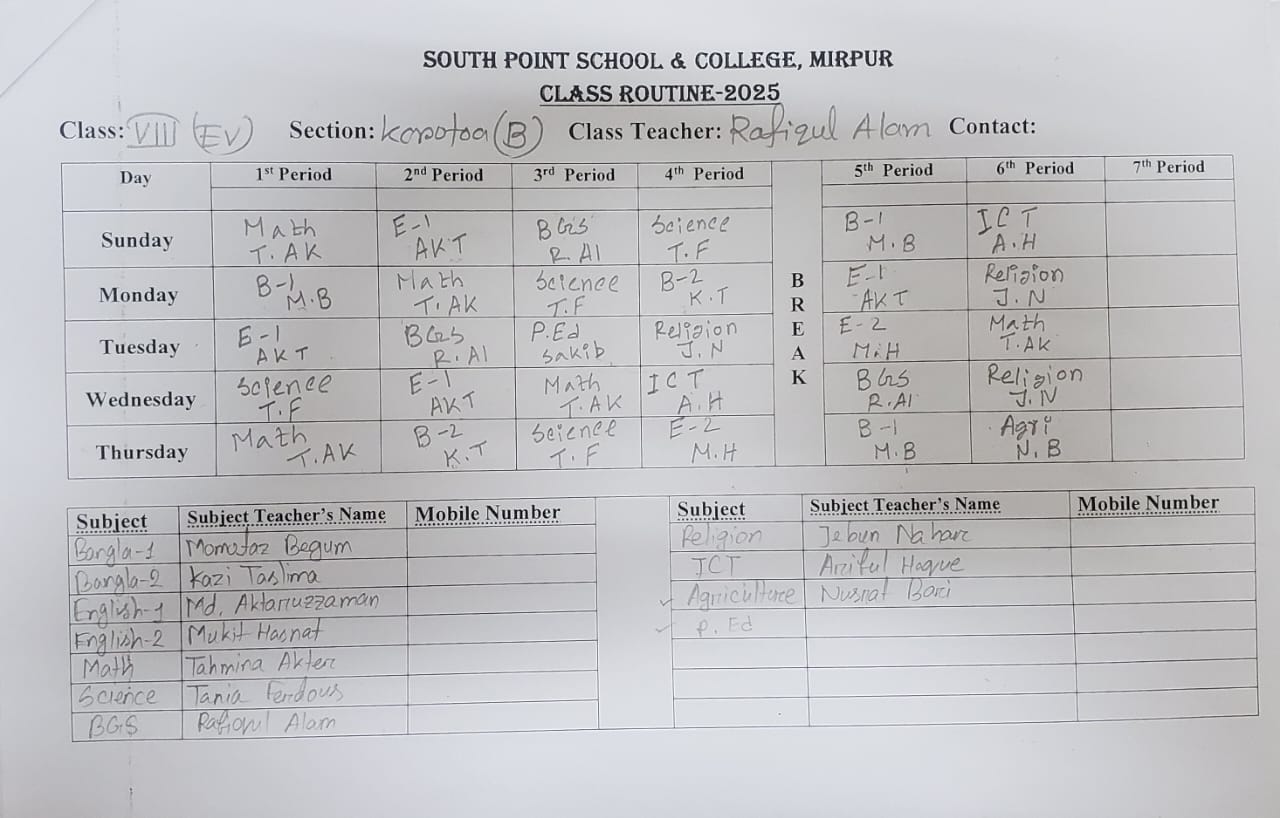 SOUTH POINT SCHOOL & COLLEGE, MIRPUR
CLASS ROUTINE-2025
Class: VIII (EV) Section: Korotoa (B) Class Teacher: Rafiqul Alam Contact:
Day 1st Period 2nd Period 3rd Period 4th Period BREAK 5th Period 6th Period 7th Period
Sunday Math T.AK E-1 AKT BGS R.Al Science T.F B-1 M.B ICT A.H
Monday B-1 M.B Math T.AK Science T.F B-2 K.T E-1 AKT Religion J.N
Tuesday E-1 AKT BGS R.Al P.Ed Sakib Religion J.N E-2 M.H Math T.AK
Wednesday Science T.F E-1 AKT Math T.AK ICT A.H BGS R.Al Religion J.N
Thursday Math T.AK B-2 K.T Science T.F E-2 M.H B-1 M.B Agri N.B
Subject Subject Teacher's Name Mobile Number Subject Subject Teacher's Name Mobile Number
Bangla-1 Momotaz Begum Religion Jebun Nahar
Bangla-2 Kazi Taslima ICT Ariful Hoque
English-1 Md. Aktaruzzaman Agriculture Nusrat Bari
English-2 Mukit Hasnat P. Ed
Math Tahmina Akter
Science Tania Ferdous
BGS Rafiqul Alam